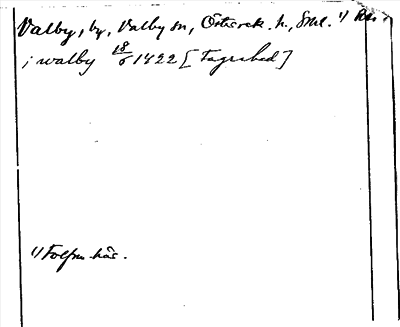 Valby, by, Valby sn, Österrek. h., Sml. 1)
i walby 18/6 1422 [Tagrabed]
1) Folfrs hds.